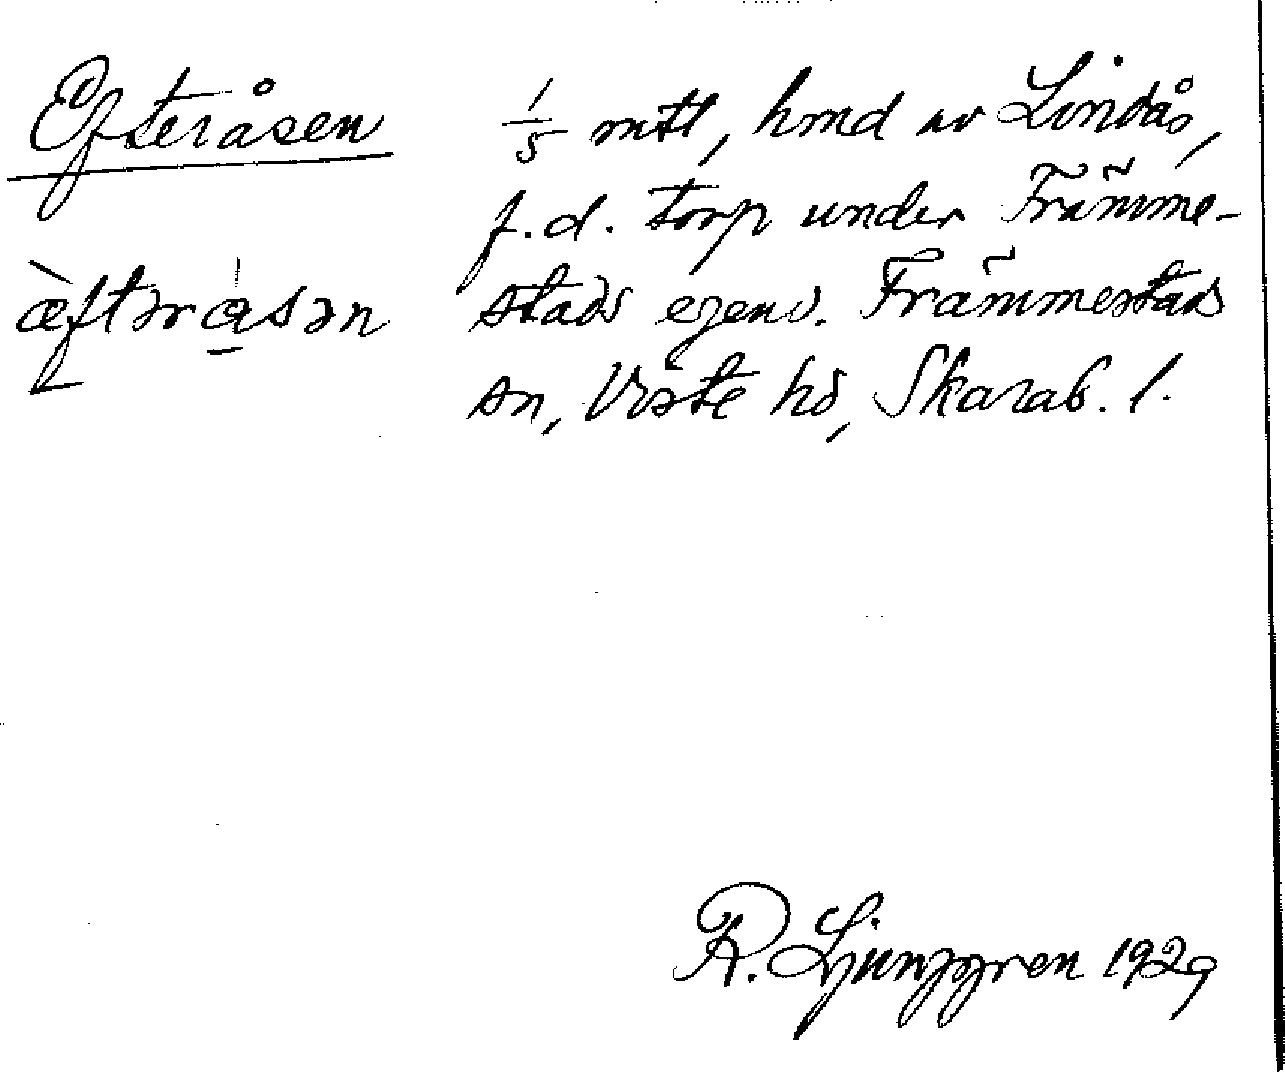 Efteråsen
æ̀ftərå̱sən
1/5 mtl, hmd av Lindås,
f.d. torp under Främme-
stads egend. Främmestads
sn, Viste hd, Skarab. l.
R. Ljunggren 1929